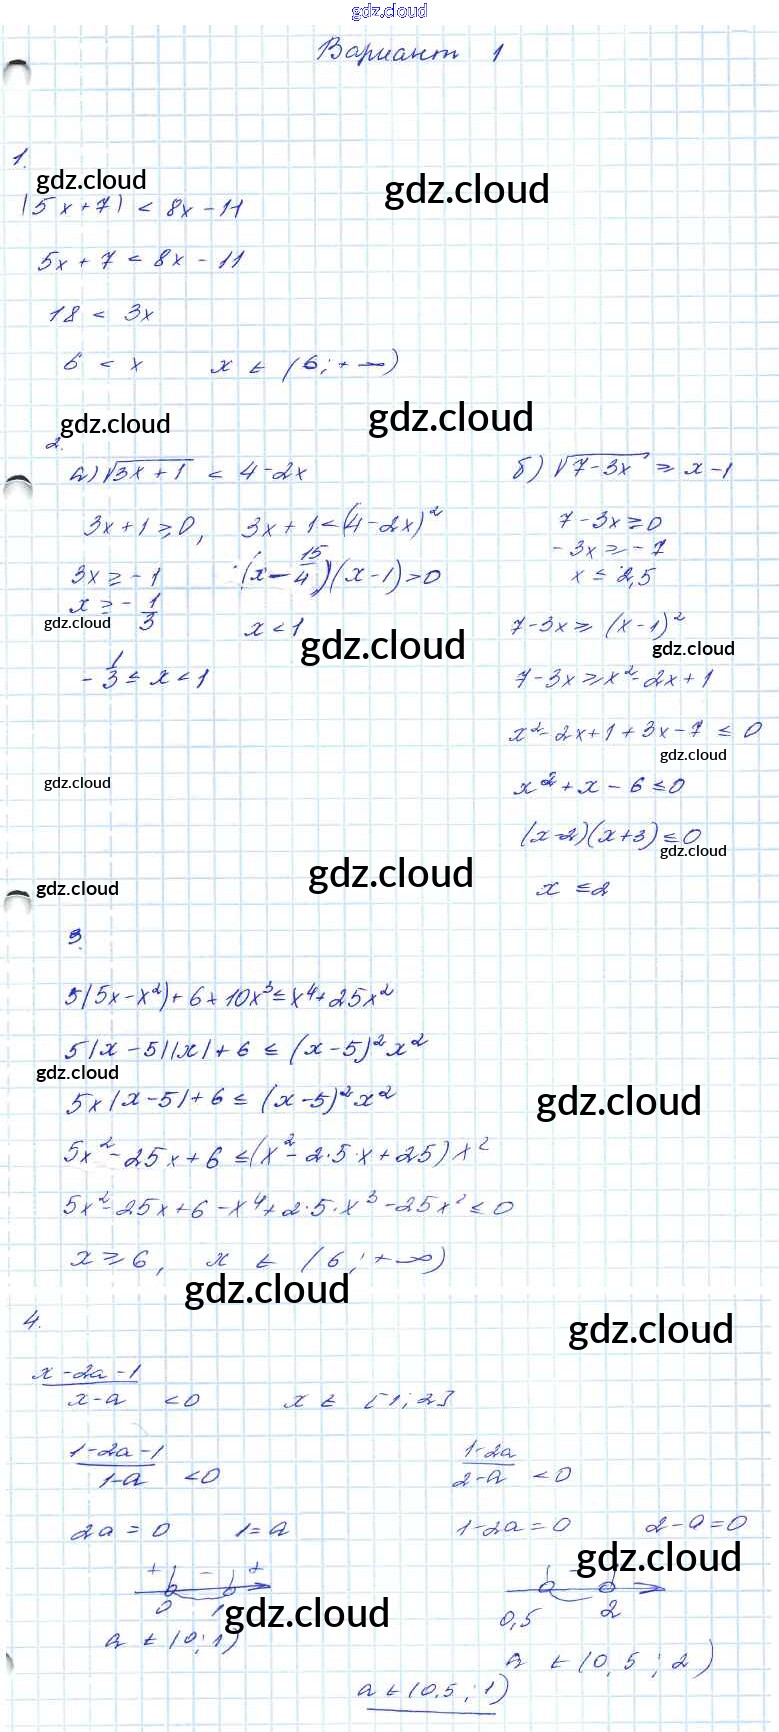 gdz.cloud
Вариант 1
1.
gdz.cloud
gdz.cloud
|5x+7| < 8x-11
5x+7 < 8x-11
18 < 3x
6 < x x ∈ (6; +∞)
gdz.cloud
gdz.cloud
2.
а) √3x+1 < 4-2x
3x+1≥0, 3x+1<(4-2x)²
3x ≥ -1 (x-15/4)(x-1)>0
x ≥ -1/3 x<1
gdz.cloud
gdz.cloud
-1/3 ≤ x < 1
gdz.cloud
б) √7-3x ≥ x-1
7-3x≥0
-3x ≥ -7
x ≤ 2,5
7-3x ≥ (x-1)²
gdz.cloud
7-3x ≥ x²-2x+1
x²-2x+1+3x-7 ≤ 0
gdz.cloud
x²+x-6≤0
(x-2)(x+3)≤0
gdz.cloud
x ≤2
gdz.cloud
gdz.cloud
3.
5|5x-x²|+6+10x³≤x⁴+25x²
5|x-5||x|+6 ≤ (x-5)²x²
gdz.cloud
5x|x-5|+6 ≤ (x-5)²x²
gdz.cloud
5x²-25x+6 ≤(x²-2·5·x+25)x²
5x²-25x+6-x⁴+2·5·x³-25x²≤0
x≥6, x ∈ (6; +∞)
gdz.cloud
4.
gdz.cloud
x-2a-1/x-a <0 x ∈ [1; 2]
1-2a-1/1-a <0
2a = 0 1=a
+ - +
0 1
a ∈ (0; 1)
gdz.cloud
1-2a/2-a <0
1-2a=0 2-a=0
gdz.cloud
0,5 2
a ∈ (0,5; 2)
a ∈ (0,5; 1)